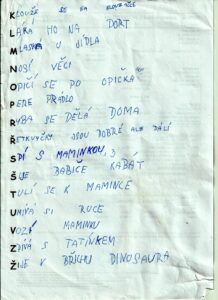 KLOUŽE SE NA
LÁKÁ HO NA DORT
MLASKÁ U JÍDLA
NOSÍ VĚCI
OPIČÍ SE PO OPIČKÁCH
PERE PRÁDLO
RYBA SE DĚLÁ DOMA
ŘETKVIČKY JSOU DOBRÉ ALE PÁLÍ
SPÍ S MAMINKOU
ŠIJE BABIČCE KABÁT
TULÍ SE K MAMINCE
UMÍVÁ SI RUCE
VOZÍ MAMINKU
ZPÍVÁ S TATÍNKEM
ŽIJE V BŘICHU DINOSAURA